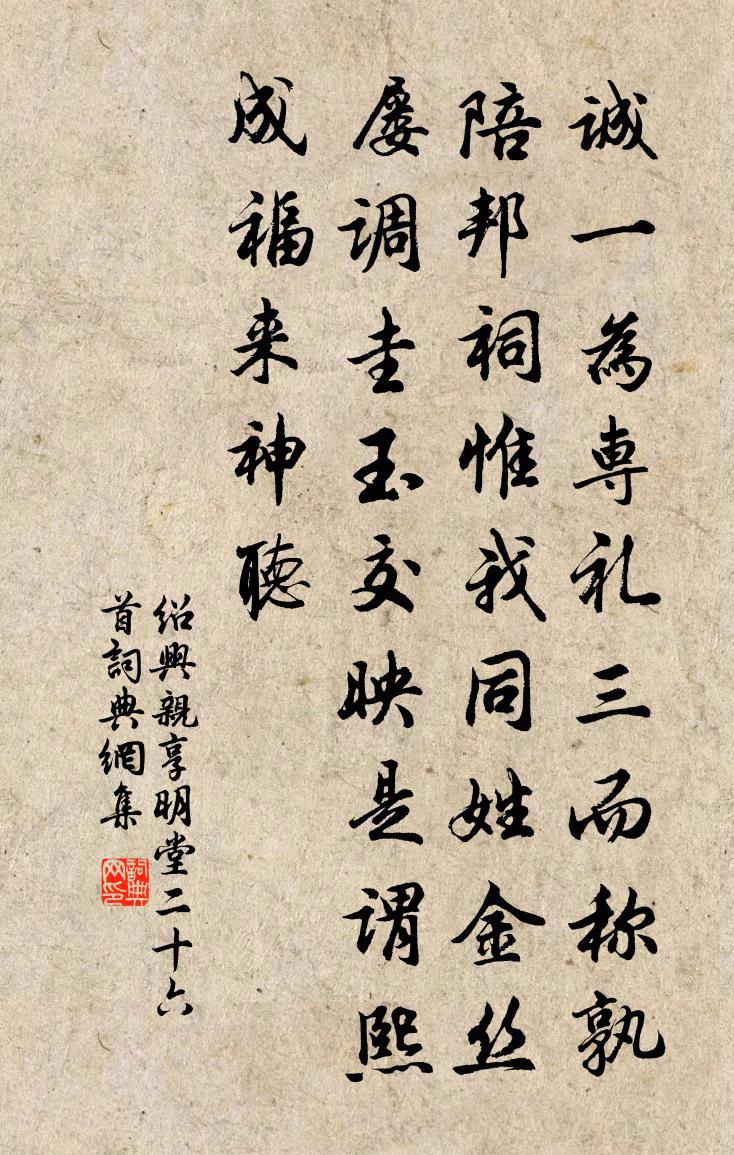 诚一为專礼三而称孰
陪邦祠惟我同姓金丝
屡调圭玉交映是谓熙
成福来神聴
绍興親享明堂二十六
首詞典網集
詞典网印